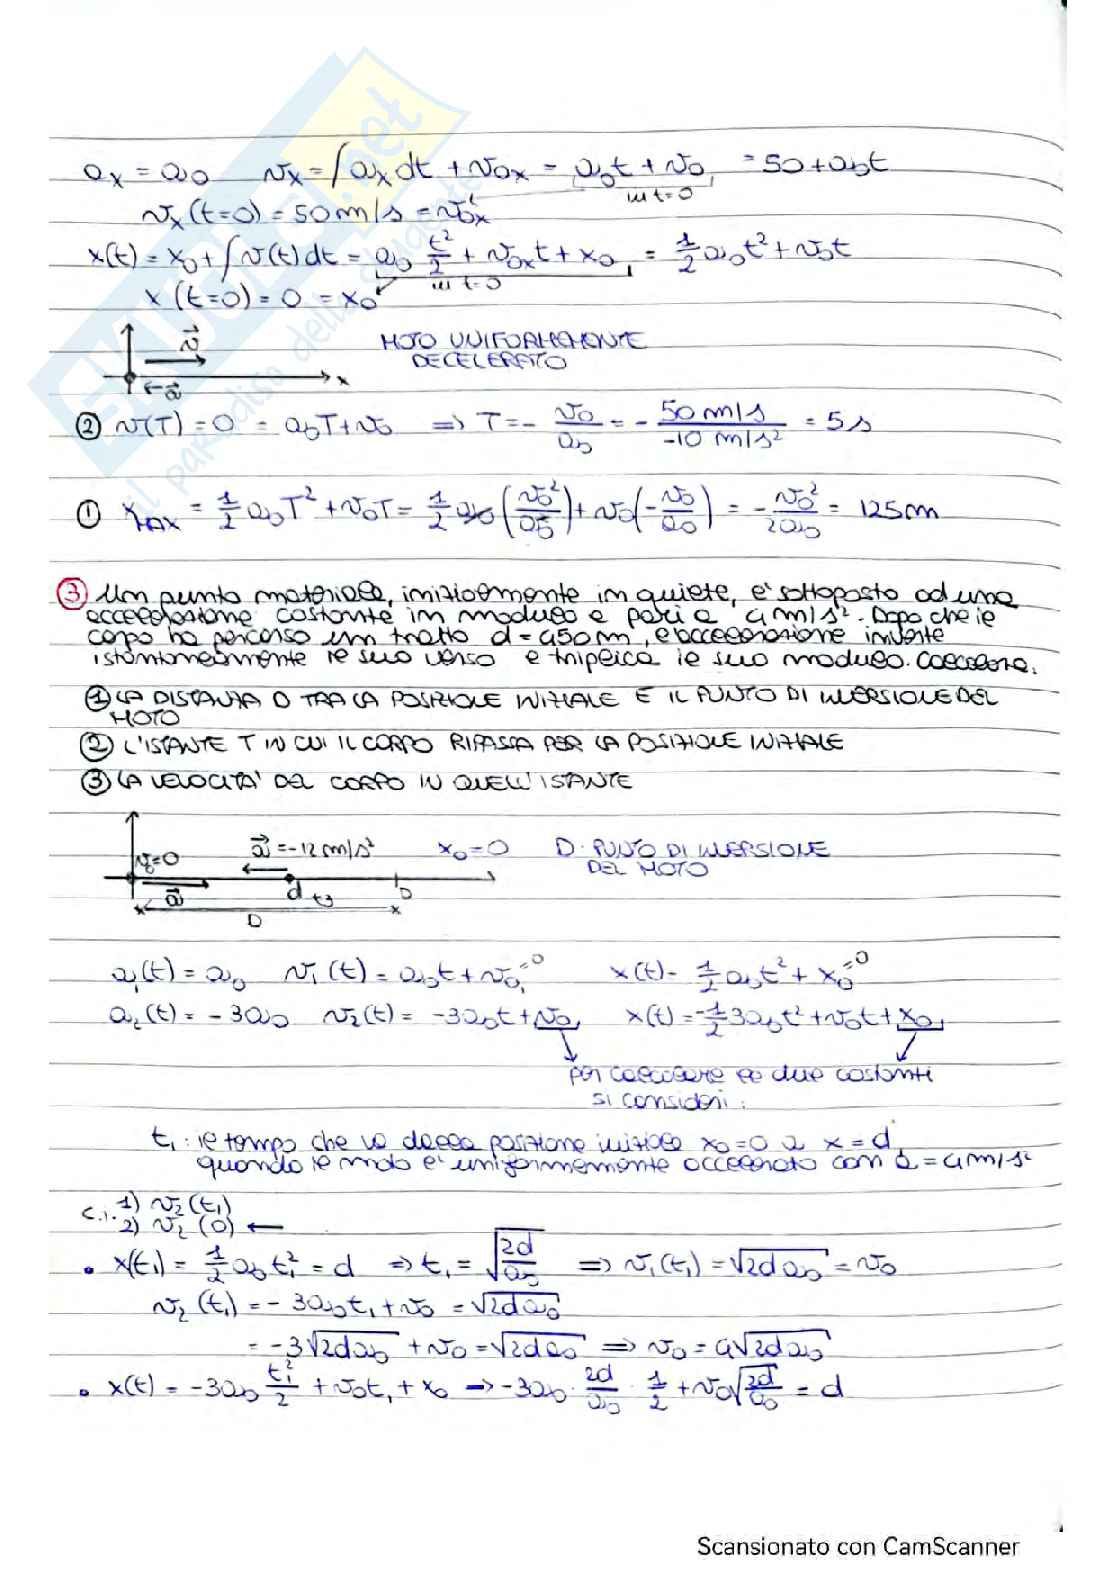 aₓ = a₀   vₓ = ∫aₓdt + v₀ₓ = a₀t + v₀ = 50 + a₀t
in t=0
vₓ(t=0) = 50 m/s = v₀ₓ
x(t) = x₀ + ∫v(t)dt = a₀ t²/2 + v₀ₓt + x₀ = 1/2 a₀t² + v₀t
in t=0
x(t=0) = 0 = x₀
v⃗
MOTO UNIFORMEMENTE
DECELERATO
x
a⃗
② v(T) = 0 = a₀T + v₀ ⇒ T = - v₀/a₀ = - 50 m/s / -10 m/s² = 5 s
① xₘₐₓ = 1/2 a₀T² + v₀T = 1/2 a₀ (v₀²/a₀²) + v₀(- v₀/a₀) = - v₀²/2a₀ = 125 m
③ Un punto materiale, inizialmente in quiete, è sottoposto ad una
accelerazione costante in modulo e pari a 4 m/s². Dopo che il
corpo ha percorso un tratto d = 450 m, l'accelerazione inverte
istantaneamente il suo verso e triplica il suo modulo. Calcolare:
① LA DISTANZA D TRA LA POSIZIONE INIZIALE E IL PUNTO DI INVERSIONE DEL
MOTO
② L'ISTANTE T IN CUI IL CORPO RIPASSA PER LA POSIZIONE INIZIALE
③ LA VELOCITA' DEL CORPO IN QUELL'ISTANTE
v₀=0   a⃗ = -12 m/s²   x₀ = 0   D: PUNTO DI INVERSIONE
DEL MOTO
a⃗   d   D
D   x
a₁(t) = a₀   v₁(t) = a₀t + v₀ =0   x(t) = 1/2 a₀t² + x₀ =0
a₂(t) = -3a₀   v₂(t) = -3a₀t + v₀   x(t) = -1/2 3a₀t² + v₀t + x₀
per calcolare le due costanti
si consideri:
t₁: il tempo che va dalla posizione iniziale x₀=0 a x = d
quando il moto è uniformemente accelerato con a = 4 m/s²
c.i. 1) v₂(t₁)
2) v₂(0) ←
• x(t₁) = 1/2 a₀t₁² = d ⇒ t₁ = √(2d/a₀) ⇒ v₁(t₁) = √(2da₀) = v₀
v₂(t₁) = -3a₀t₁ + v₀ = √(2da₀)
= -3√(2da₀) + v₀ = √(2da₀) ⇒ v₀ = 4√(2da₀)
• x(t) = -3a₀ t₁²/2 + v₀t₁ + x₀ → -3a₀ · 2d/a₀ · 1/2 + v₀√(2d/a₀) = d
Scansionato con CamScanner